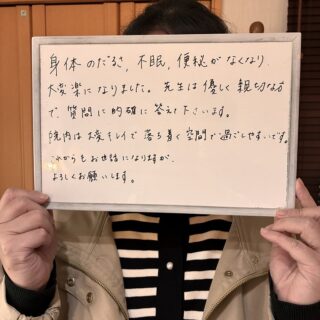 身体のだるさ、不眠、便秘がなくなり
大変楽になりました。先生は優しく親切な方
で、質問に的確に答えて下さいます。
院内は大変キレイで落ち着く空間で過ごしやすいです。
これからもお世話になりますが、
よろしくお願いします。